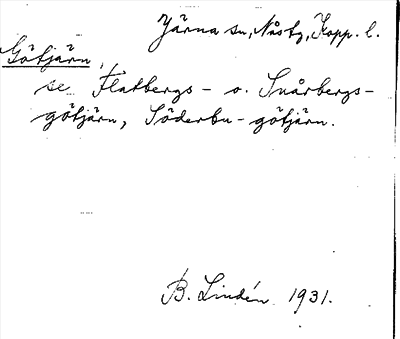 Järna sn, Nåsbg, Kopp. l.
Götjärn,
se Flatbergs- o. Snårbergs-
götjärn, Söderbu-götjärn.
B. Lindén 1931.